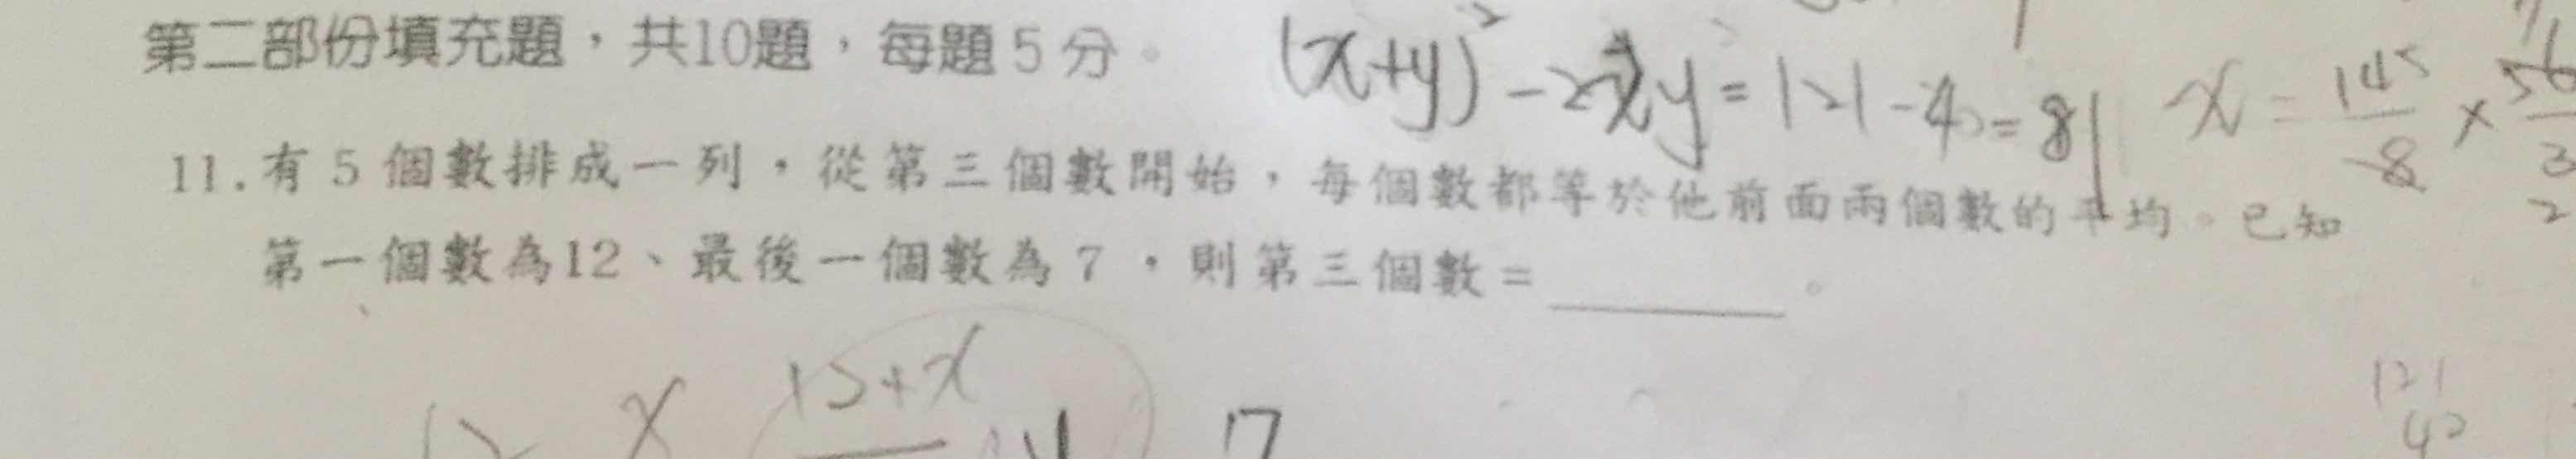 第二部份填充題，共10題，每題5分。
(x+y)² - 2xy = 121 - 40 = 81
x = 145/8 ×
11.有5個數排成一列，從第三個數開始，每個數都等於他前面兩個數的平均。已知
第一個數為12、最後一個數為7，則第三個數=______。
12 x 12+x y 7
121
40